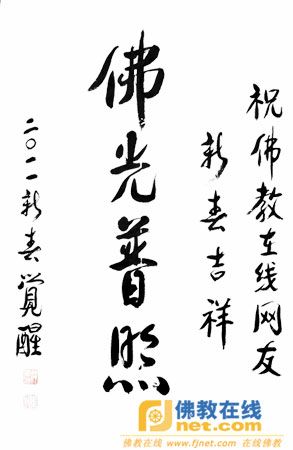 祝佛教在线网友
新春吉祥
佛光普照
二〇一一新春覺醒
佛教在线
net.com
www.fjnet.com 在线佛教